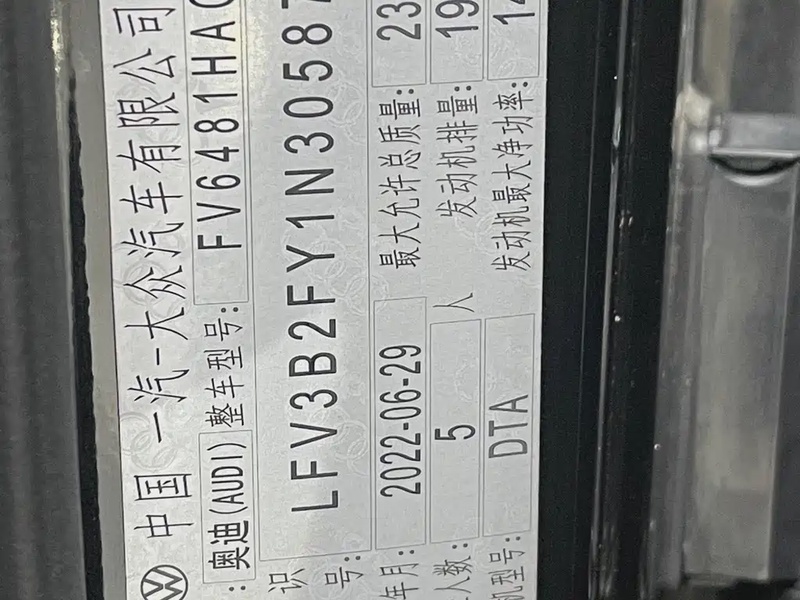 中国 一汽-大众汽车有限公司
: 奥迪(AUDI) 整车型号: FV6481HAC
识 号: LFV3B2FY1N30587
年月: 2022-06-29 最大允许总质量: 23
人数: 5 人 发动机排量: 19
机型号: DTA 发动机最大净功率: 14